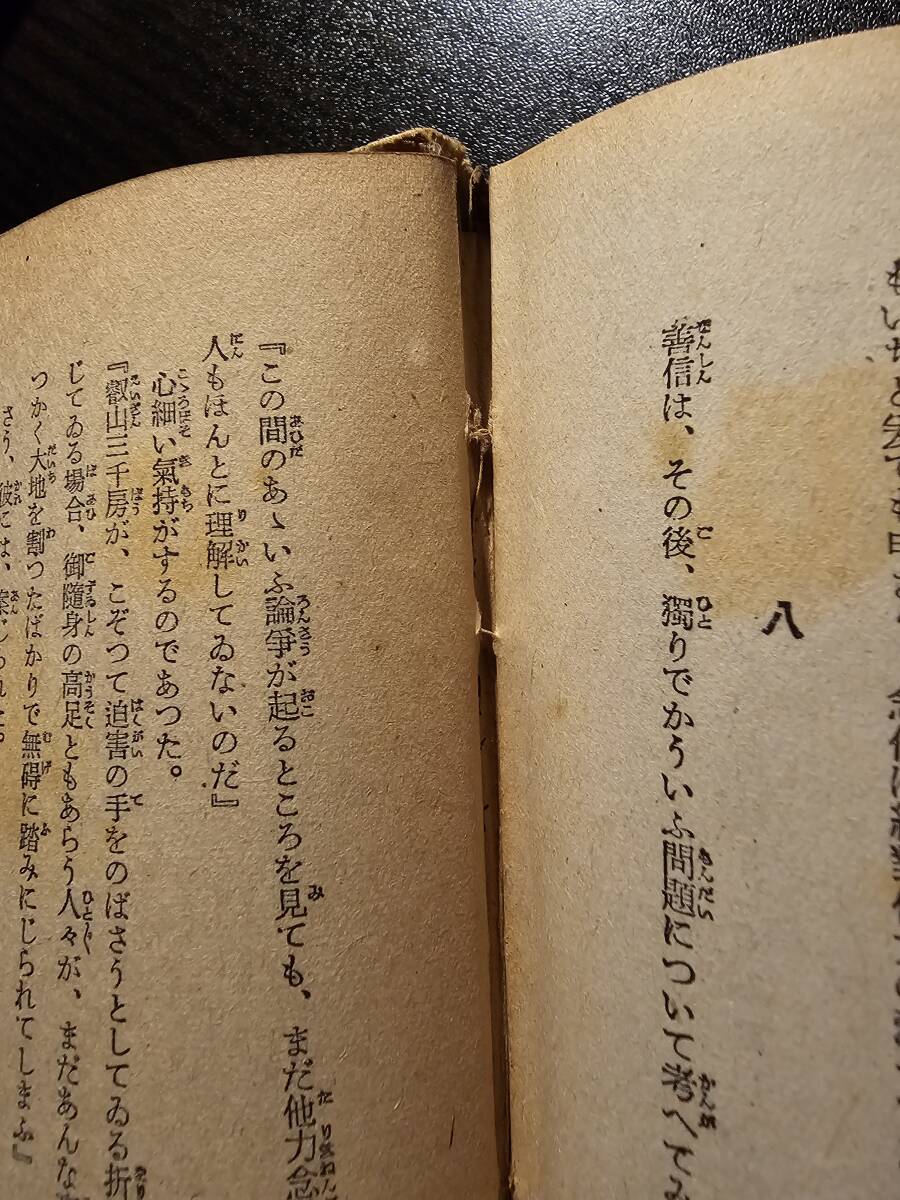 八
善信は、その後、獨りでかういふ問題について考へてみ
『この間のあゝいふ論爭が起るところを見ても、まだ他力念
人もほんとに理解してゐないのだ』
心細い氣持がするのであつた。
『叡山三千房が、こぞつて迫害の手をのばさうとしてゐる折
じてゐる場合、御隨身の高足ともあらう人々が、まだあんな
つかく大地を割つたばかりで無碍に踏みにじられてしまふ』
さう、彼には、案じられた。